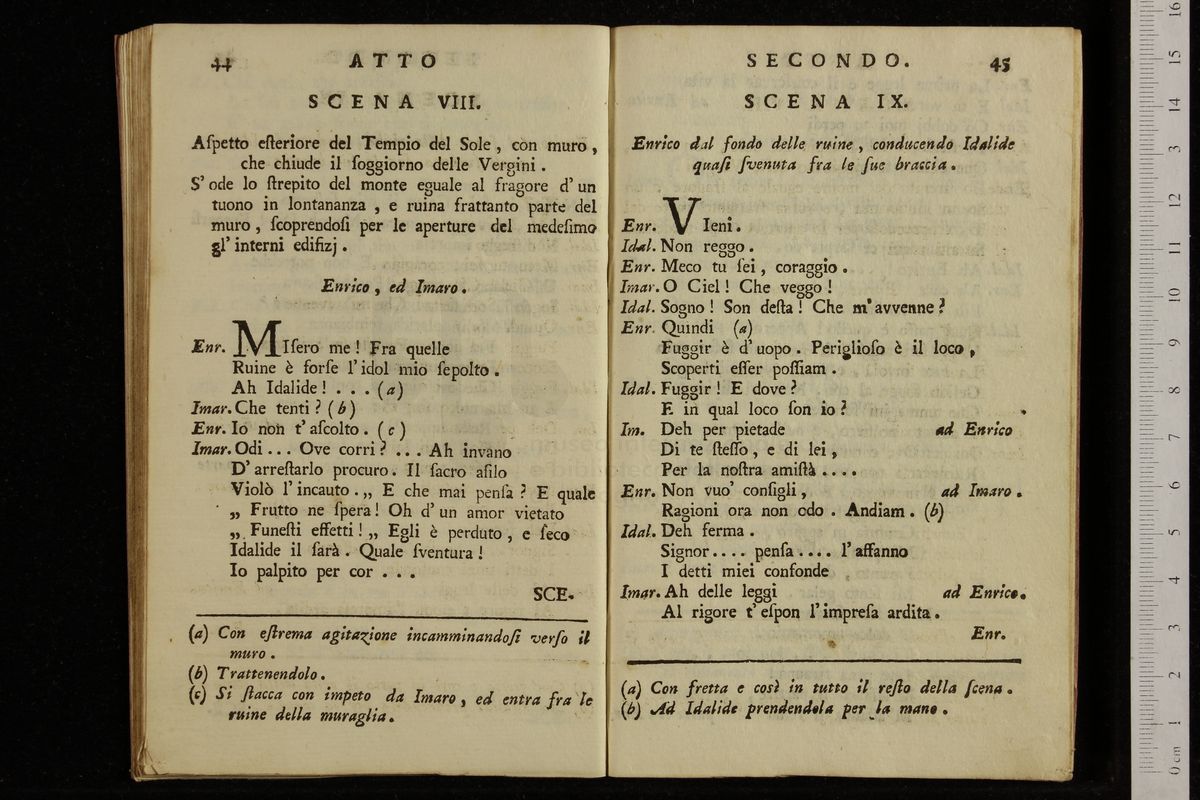 44 ATTO
SCENA VIII.
Aſpetto eſteriore del Tempio del Sole, con muro,
che chiude il ſoggiorno delle Vergini.
S' ode lo ſtrepito del monte eguale al fragore d' un
tuono in lontananza, e ruina frattanto parte del
muro, ſcoprendoſi per le aperture del medeſimo
gl' interni edifizj.
Enrico, ed Imaro.
Enr. MIſero me! Fra quelle
Ruine è forſe l' idol mio ſepolto.
Ah Idalide! . . . (a)
Imar. Che tenti? (b)
Enr. Io non t' aſcolto. (c)
Imar. Odi... Ove corri? ... Ah invano
D' arreſtarlo procuro. Il ſacro aſilo
Violò l' incauto. „ E che mai penſa? E quale
„ Frutto ne ſpera! Oh d' un amor vietato
„ Funeſti effetti! „ Egli è perduto, e ſeco
Idalide il ſarà. Quale ſventura!
Io palpito per cor . . .
SCE.
(a) Con eſtrema agitazione incamminandoſi verſo il
muro.
(b) Trattenendolo.
(c) Si ſtacca con impeto da Imaro, ed entra fra le
ruine della muraglia.
SECONDO. 45
SCENA IX.
Enrico dal fondo delle ruine, conducendo Idalide
quaſi ſvenuta fra le ſue braccia.
Enr. VIeni.
Idal. Non reggo.
Enr. Meco tu ſei, coraggio.
Imar. O Ciel! Che veggo!
Idal. Sogno! Son deſta! Che m' avvenne?
Enr. Quindi (a)
Fuggir è d' uopo. Periglioſo è il loco,
Scoperti eſſer poſſiam.
Idal. Fuggir! E dove?
E in qual loco ſon io?
Im. Deh per pietade ad Enrico
Di te ſteſſo, e di lei,
Per la noſtra amiſtà ....
Enr. Non vuo' conſigli, ad Imaro.
Ragioni ora non odo. Andiam. (b)
Idal. Deh ferma.
Signor.... penſa.... l' affanno
I detti miei confonde
Imar. Ah delle leggi ad Enrico.
Al rigore t' eſpon l' impreſa ardita.
Enr.
(a) Con fretta e così in tutto il reſto della ſcena.
(b) Ad Idalide prendendola per la mano.
0 cm 1 2 3 4 5 6 7 8 9 10 11 12 3 14 15 16